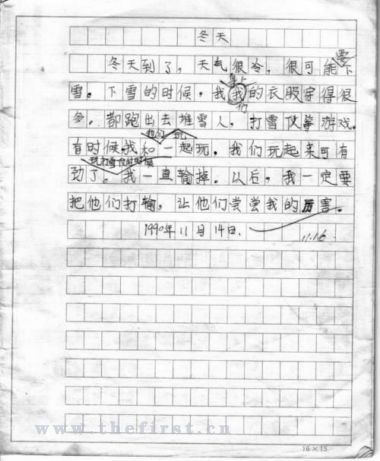 冬天
冬天到了，天气很冷，很可能下
要
雪。下雪的时候，我我的衣服穿得很
身上
们
多，都跑出去堆雪人，打雪仗等游戏。
有时候，我和一起玩。我们玩起来可有
他们 玩
劲了。我一直输掉。以后，我一定要
把他们打输，让他们尝尝我的厉害。
1990年11月14日.
11.16
www.thefirst.cn
16×15